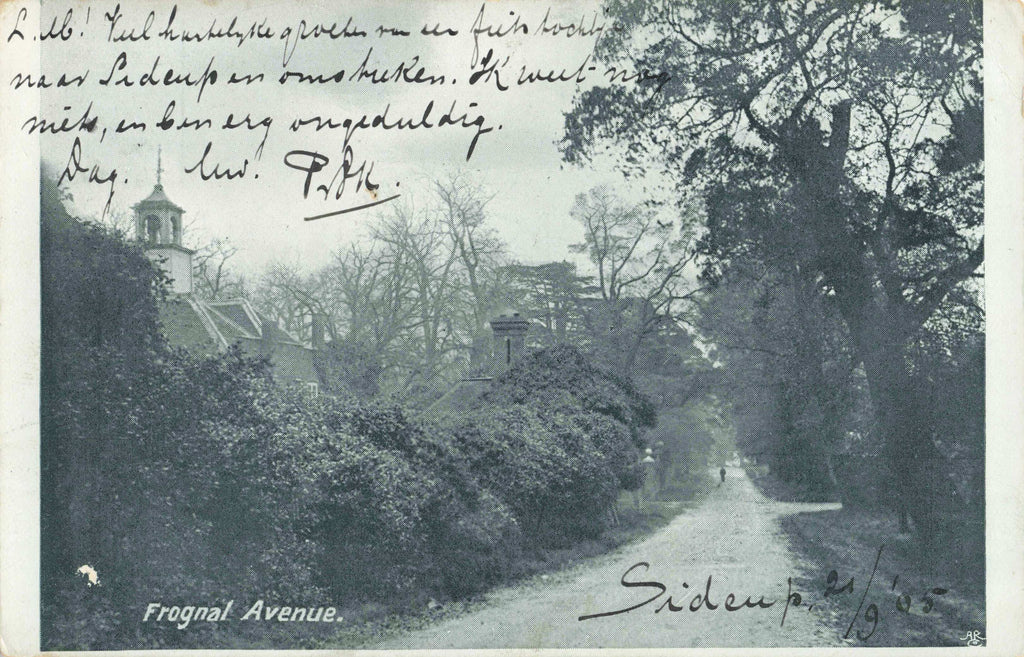 L. M! Veel hartelyke groeten van een fiets tocht
naar Sidcup en omstreken. Ik weet nog
niets, en ben erg ongeduldig.
Dag.
Frognal Avenue.
Sidcup, 21/9 '05
AR